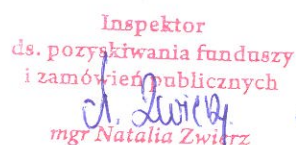 Inspektor
ds. pozyskiwania funduszy
i zamówień publicznych
N. Zwierz
mgr Natalia Zwierz